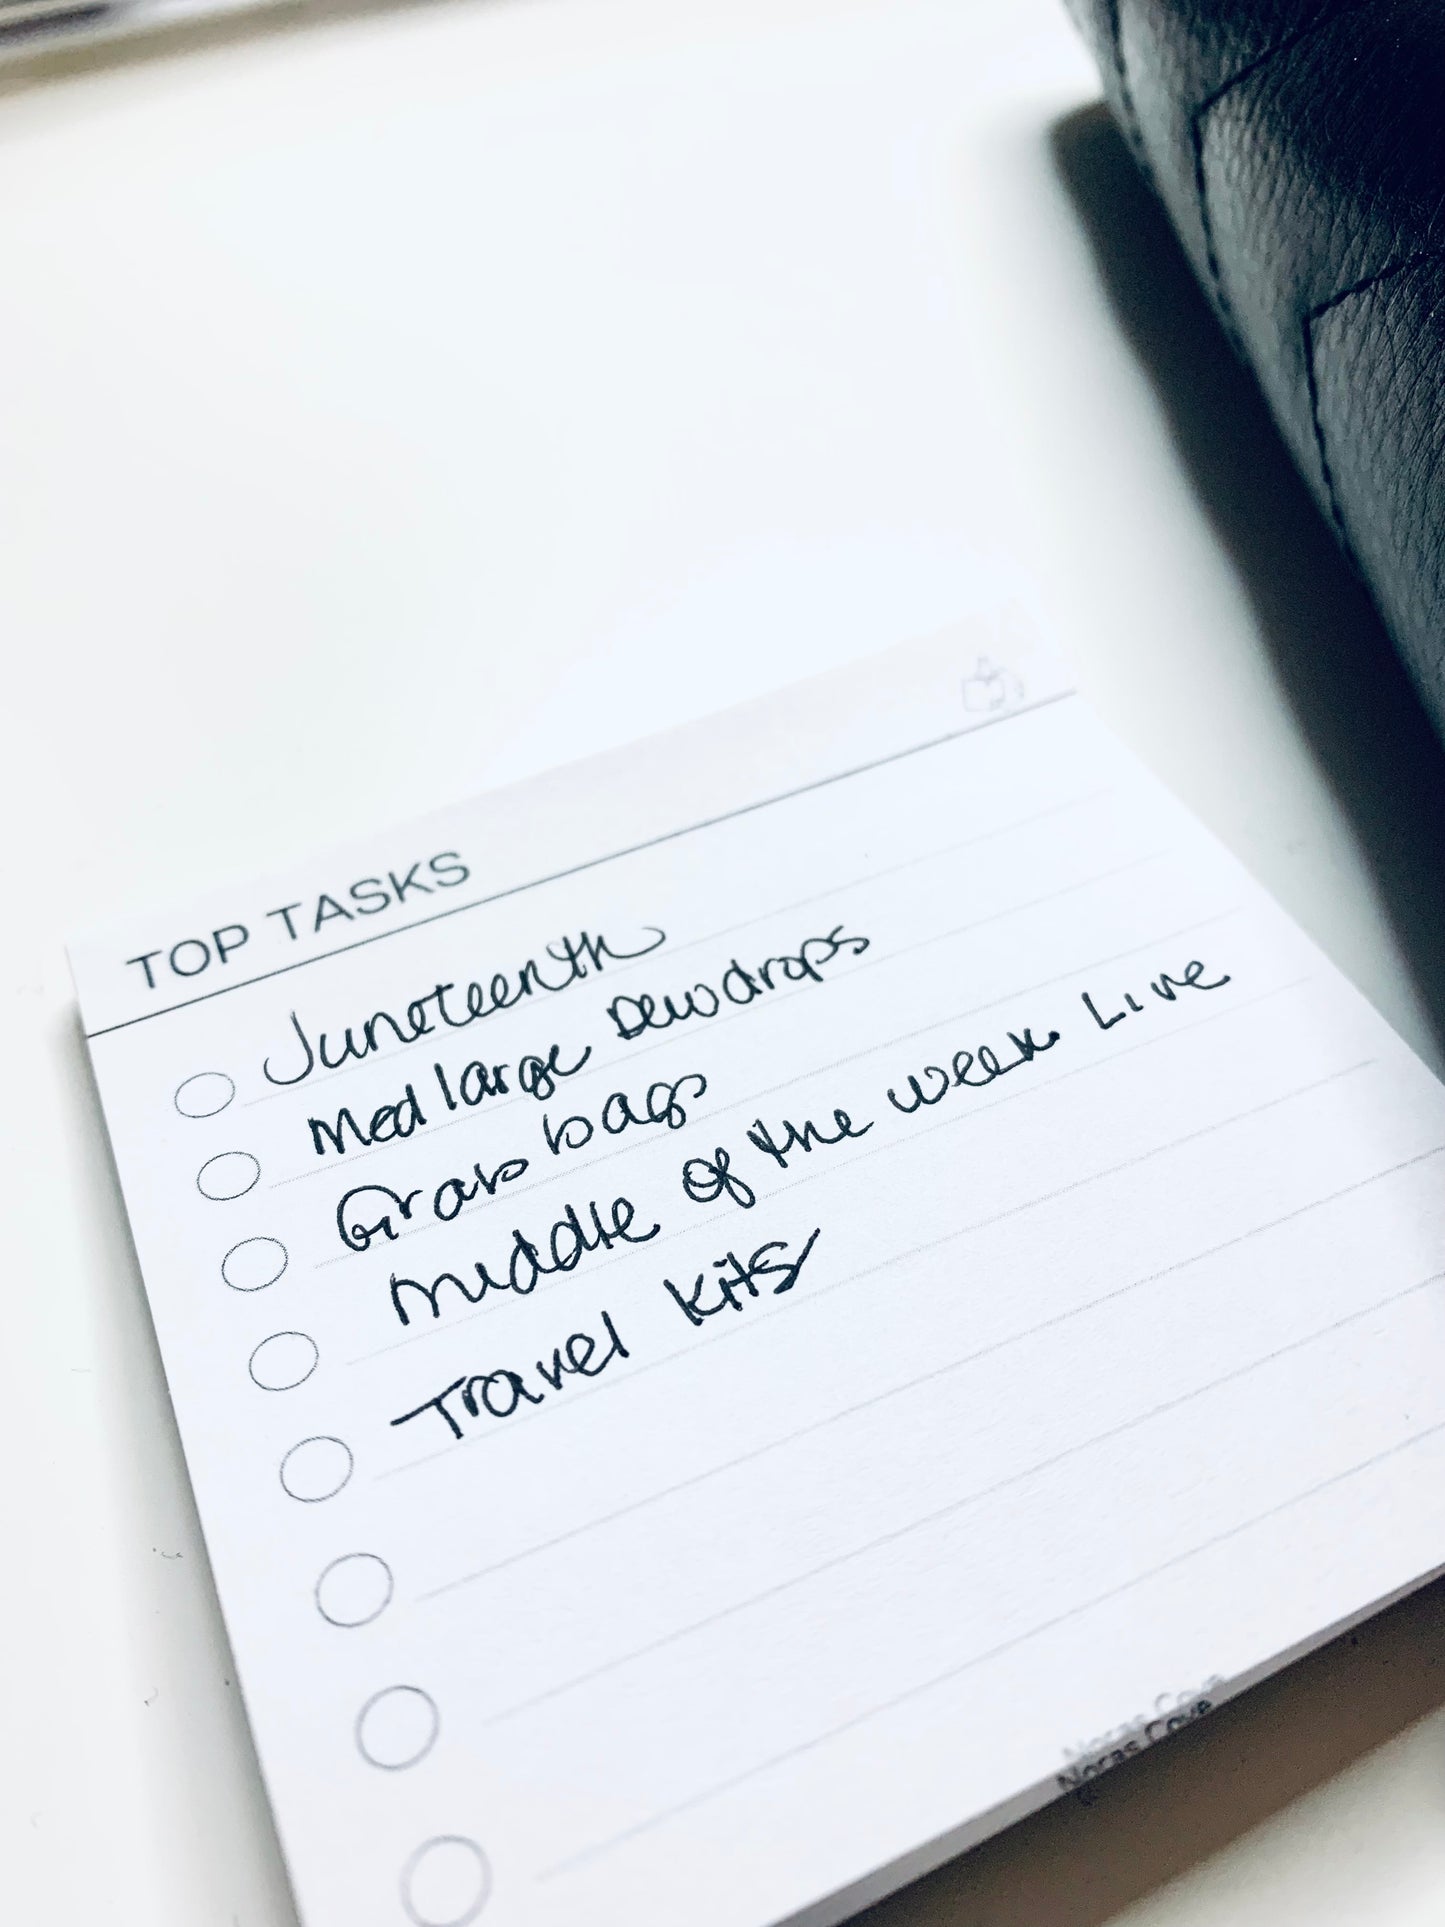 TOP TASKS
Juneteenth
Med large Dewdrops
Grab bags
Middle of the week Live
Travel kits
Noras Cove